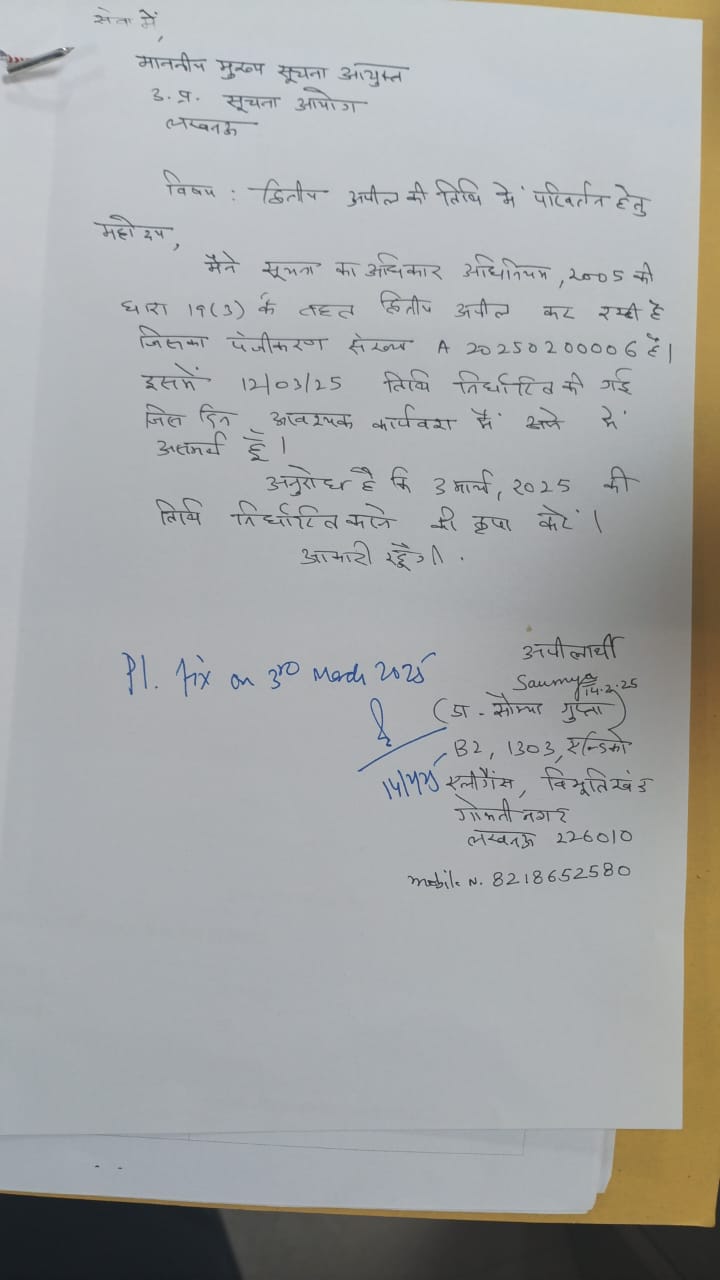 सेवा में,
माननीय मुख्य सूचना आयुक्त
उ. प्र. सूचना आयोग
लखनऊ
विषय : द्वितीय अपील की तिथि में परिवर्तन हेतु
महोदय,
मैने सूचना का अधिकार अधिनियम, 2005 की
धारा 19(3) के तहत द्वितीय अपील कर रखी है
जिसका पंजीकरण संख्या A 20250200006 है।
इसमें 12/03/25 तिथि निर्धारित की गई
जिस दिन आवश्यक कार्यवश मैं आने में
असमर्थ हूँ।
अनुरोध है कि 3 मार्च, 2025 की
तिथि निर्धारित करने की कृपा करें।
आभारी रहूँगी.
अपीलार्थी
Pl. fix on 3rd March 2025
Saumya
14.2.25
(डा. सौम्या गुप्ता)
B2, 1303,
एलीगैंस, विभूतिखंड
गोमती नगर
लखनऊ 226010
Mobile N. 8218652580